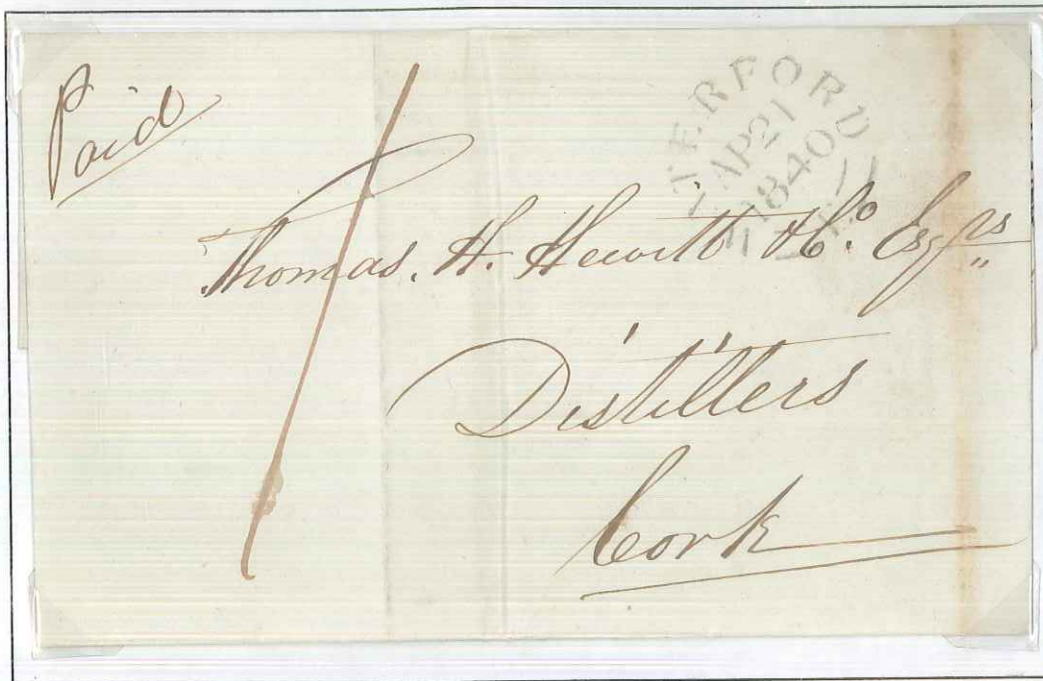 Paid
TERFORD
AP 21
1840
Thomas. H. Hewitt &Co. Esqrs
Distillers
Cork